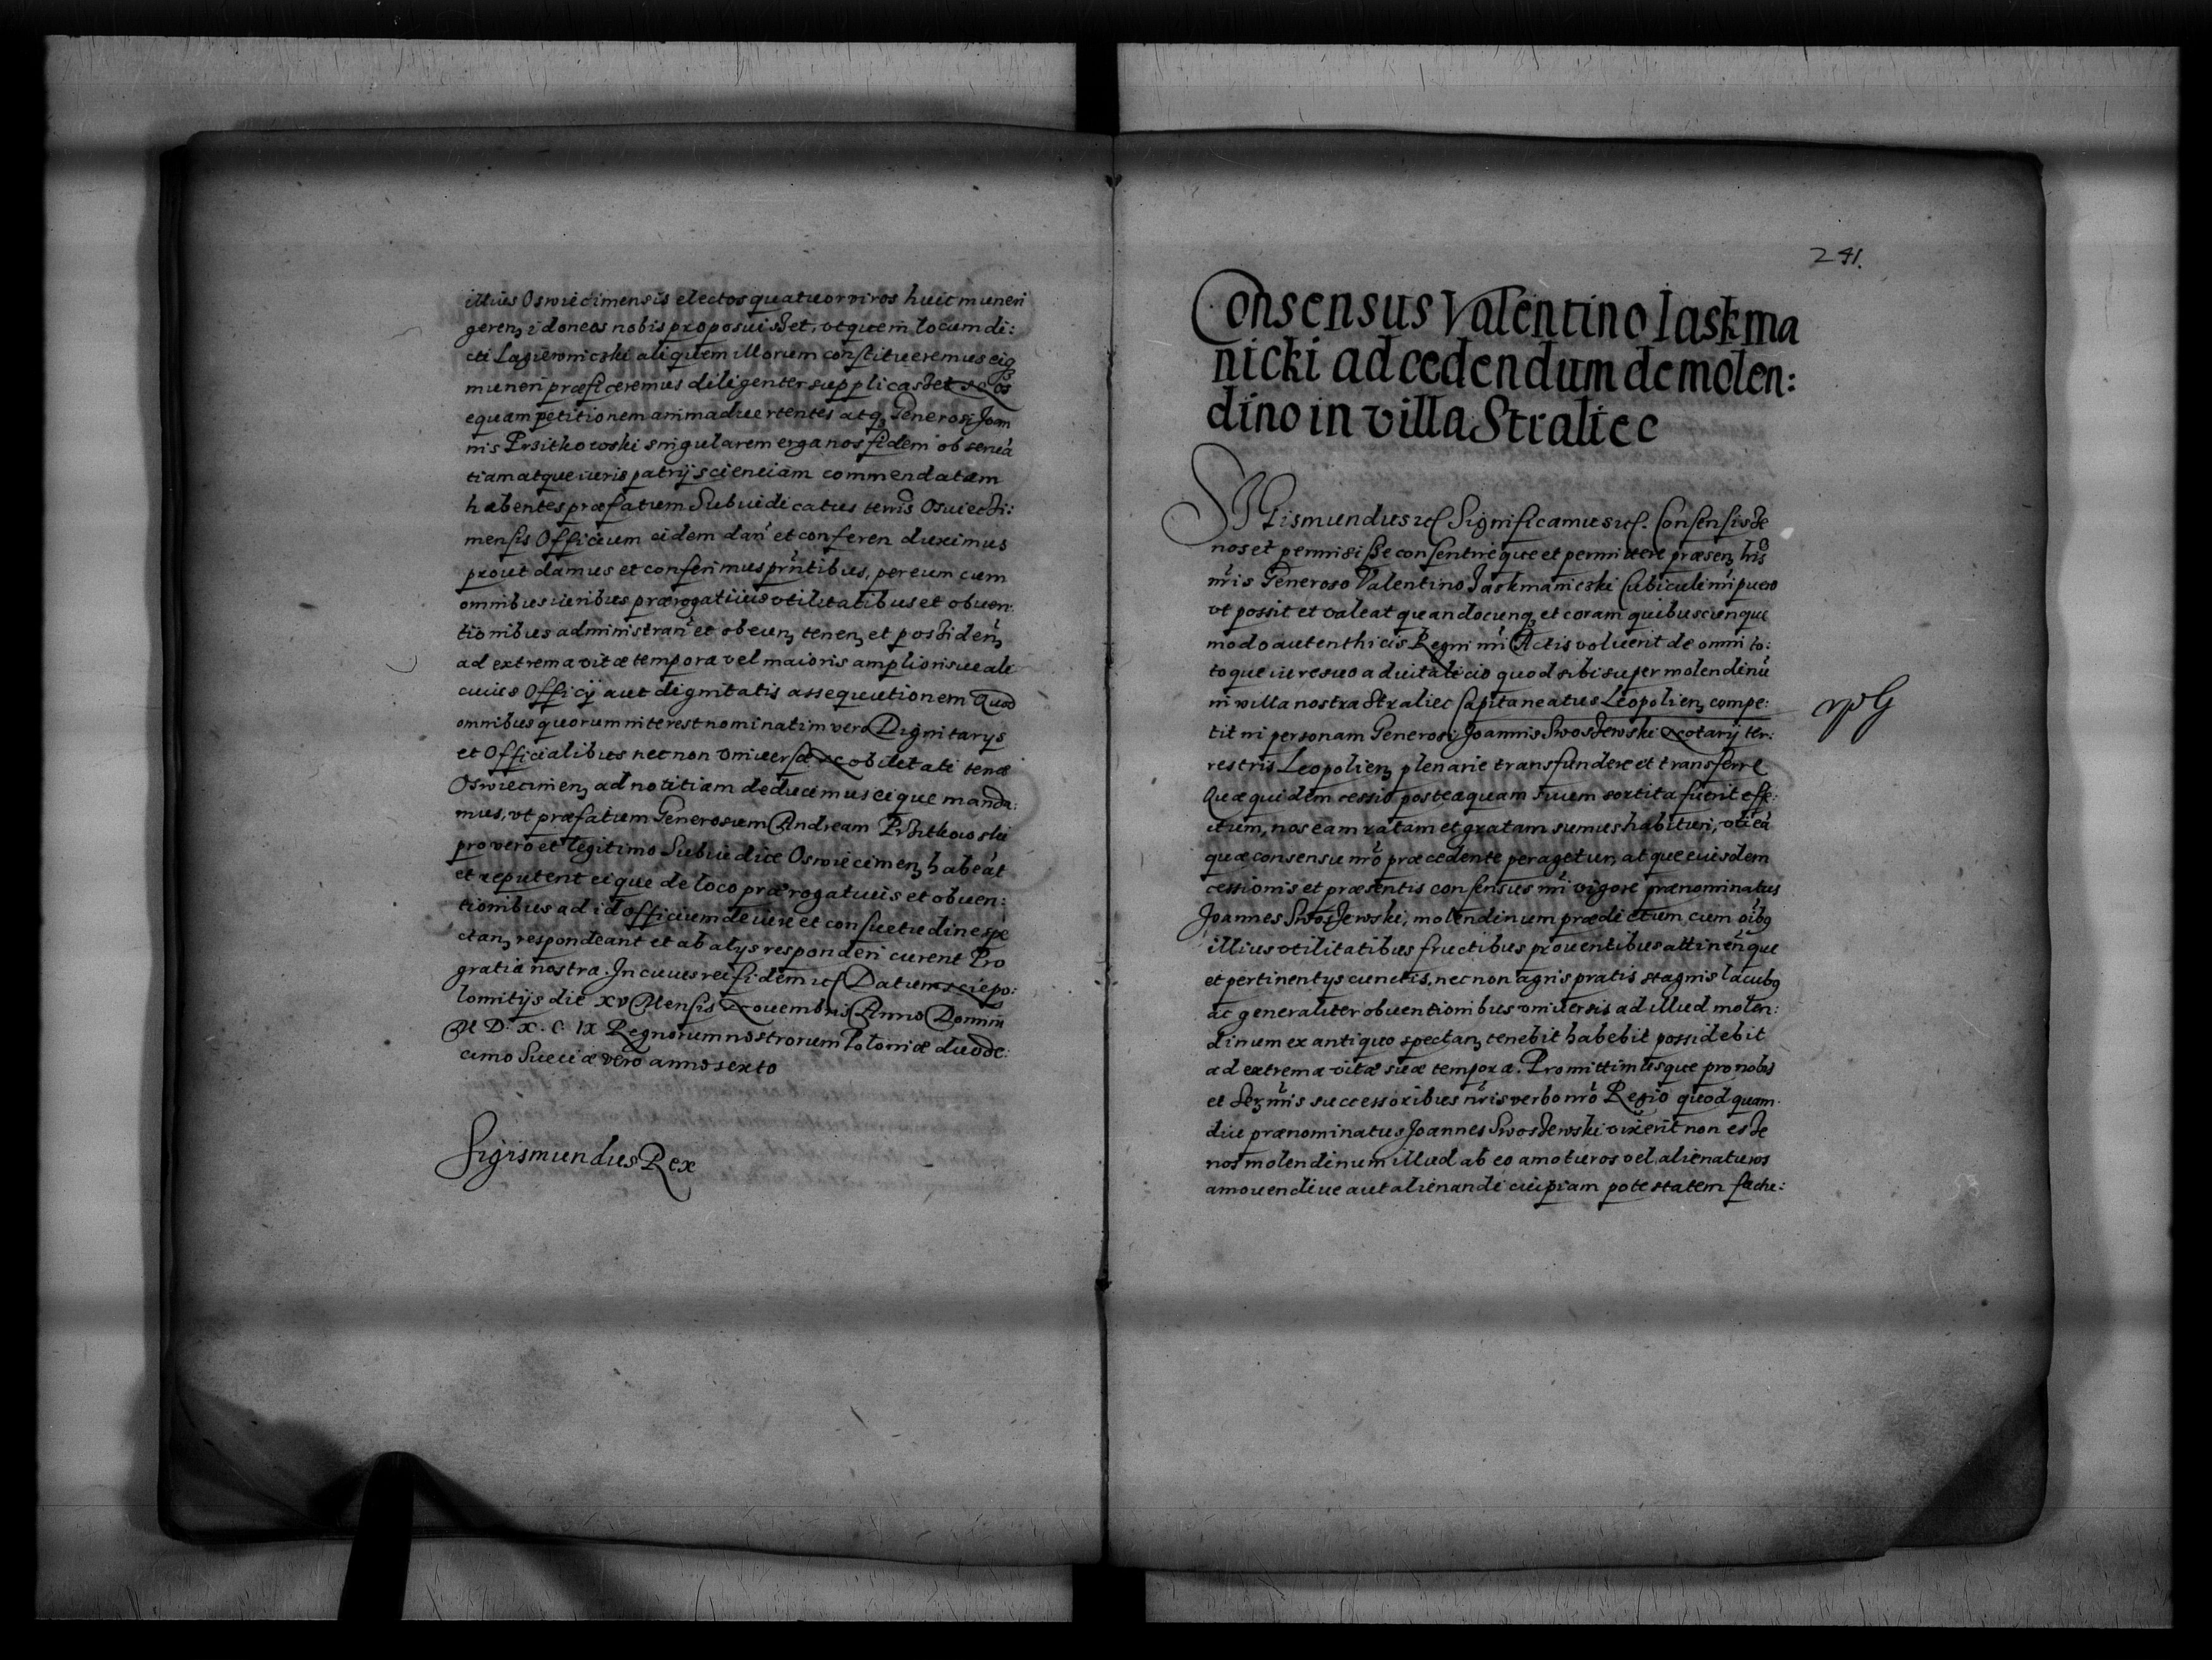 illius Oswiecimensis electos quatuor viros huic muneri
geren, idoneos nobis proposuisset, vt quem in locum di:
cti Lagiewnicski aliquem illorum constitueremus eiq
muneri præficeremus diligenter supplicasset Nos
equam petitionem animaduertentes atq, Generosi Joan
nis Przitkowski singularem erga nos fidem obserua
tiam atque iuris patrij scienciam commendatam
habentes præfatum Subiudicatus terris Oswieczi:
mensis Officium eidem dan et conferen duximus
prout damus et conferimus prntibus, per eum cum
omnibus iuribus prærogatiuis vtilitatibus et obuen:
tionibus administran et obeun, tenen, et possiden,
ad extrema vitæ tempora vel maioris amplioris ue ali
cuius Officij aut dignitatis assequutionem Quod
omnibus quorum interest nominatim vero Dignitarys
et Officialibus nec non vniuersæ Nobilitati terræ
Oswiecimen, ad notitiam deducimus eique manda:
mus, vt præfatum Generosum Andream Przitkowski
pro vero et legitimo Subiudice Oswiecimen, habeat
et reputent eique de loco prærogatiuis et obuen:
tionibus ad id officium de iure et consuetudine spe
ctan, respondeant et ab alys responderi curent Pro
gratia nostra. In cuius rei fidem etc Datum Niepo:
lomitijs die XV Mensis Nouembris Anno Domini
M D. X. C. IX Regnorum nostrorum Poloniæ duode:
cimo Sueciæ vero anno sexto
Sigismundus Rex
241.
Consensus Valentino Iaskma
nicki ad cedendum de molen:
dino in villa Straliec
SIGismundus etc Significamus etc. Consensisse
nos et permisisse consentireque et permittere præsen, lris
nris Generoso Valentino Jaskmanicski Cubiculi nri puero
vt possit et valeat quandocunq, et coram quibuscunque
modo autenthicis Regni nri Actis voluerit de omni to:
toque iure suo aduitalicio quod sibi super molendinu
in villa nostra Straliec Capitaneatus Leopolien, compe:
tit in personam Generosi Joannis Swoszewski Notarij ter:
restris Leopolien, plenarie transfundere et transferre
Quæquidem cessio posteaquam suum sortita fuerit effe:
ctum, nos eam ratam et gratam sumus habituri, vti ea
quæ consensu nro præcedente peragetur, atque eiusdem
cessionis et præsentis consensus nri vigore prænominatus
Joannes Swoszewski, molendinum prædictum cum oibq
illius vtilitatibus fructibus prouentibus attinen que
et pertinentys cunctis, nec non agris pratis stagnis lacubq
ac generaliter obuentionibus vniuersis ad illud molen:
dinum ex antiquo spectan, tenebit habebit possidebit
ad extrema vitæ suæ tempora. Promittimusque pro nobis
et Ser, nris successoribus nris verbo nro Regio quod quam
diu prænominatus Joannes Swoszewski vixerit non esse
nos molendinum illud ab eo amoturos vel alienaturos
amouendi ue aut alienandi cuipiam potestatem factu: